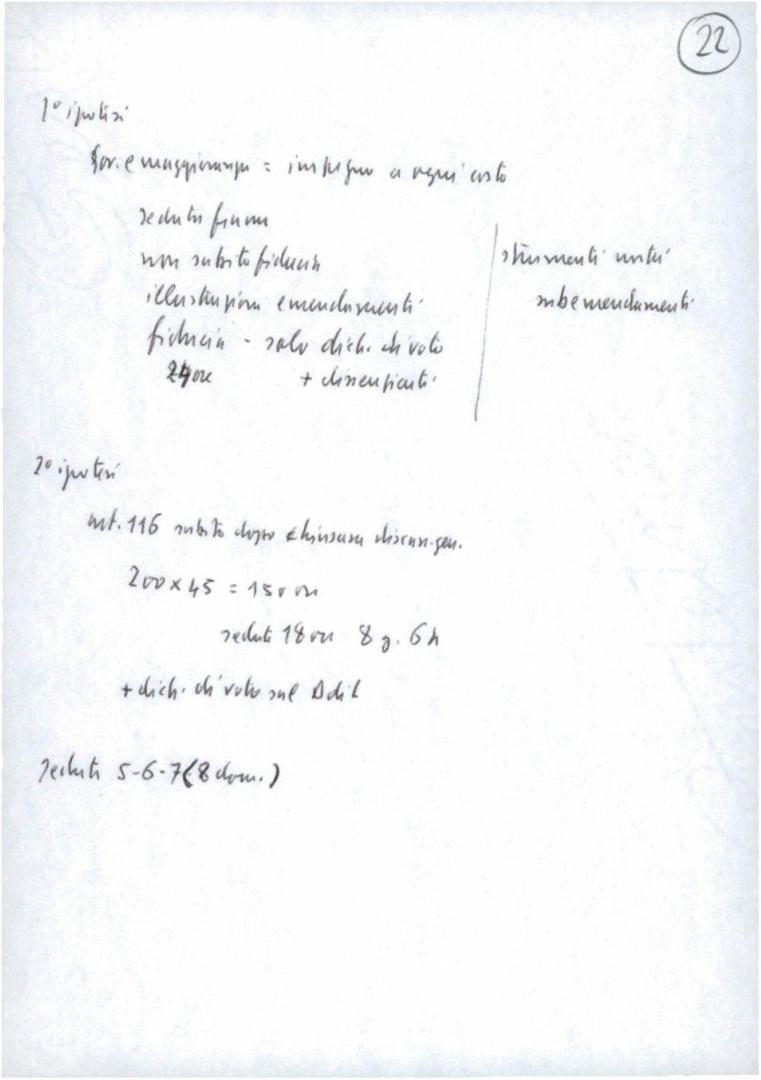 22
1° ipotesi
Gov. e maggioranza = impegno a ogni costo
seduta fiume
non subito fiducia
illustrazione emendamenti
fiducia - solo dich. di voto
24 ore + dissenzienti
strumenti
subemendamenti
2° ipotesi
art. 116 subito dopo chiusura discuss. gen.
200 x 45 = 150 ore
sedute 18 ore 8 g. 6 h
+ dich. di voto sul Ddil
Sedute 5-6-7 (8 dom.)